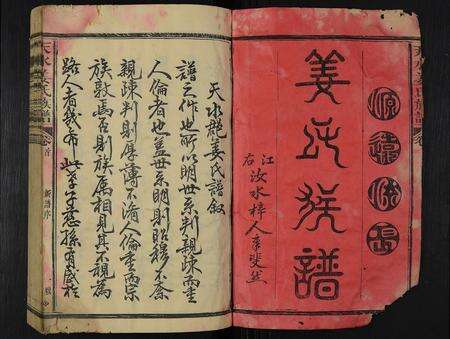 姜氏族譜
江右
汝水梓人李斐然
天水郡姜氏譜敘
譜之作也所以明世系判親疎而重
人倫者也蓋世系明則昭穆不紊
親疎判則厚薄不淆人倫重而宗
族敦焉否則族属相見其不視為
路人者幾希此孝子慈孫有感於
天水姜氏族譜
卷首
新譜序